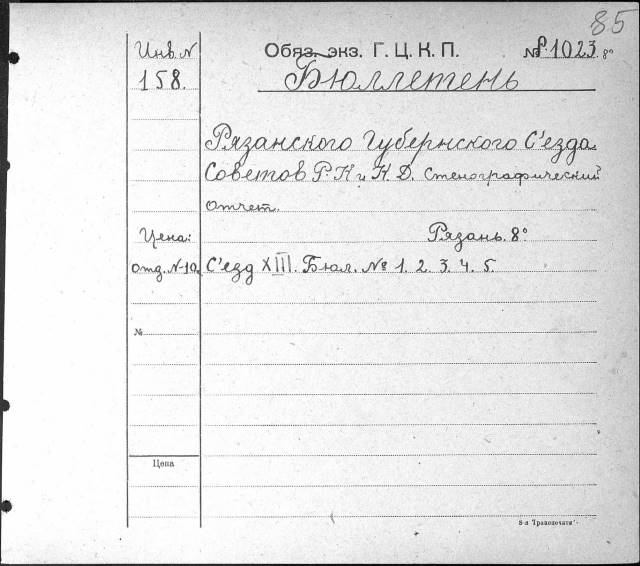 85
Инв. N Обяз. экз. Г. Ц. К. П. № Р. 1023. 8°
158. Бюллетень
Рязанского Губернского С'езда
Советов Р. К и К. Д. Стенографический
отчет.
Цена: Рязань. 8°
отд. N 10. С'езд XIII. Бюл. № 1. 2. 3. 4. 5.
№
Цена
8-я Транспечати